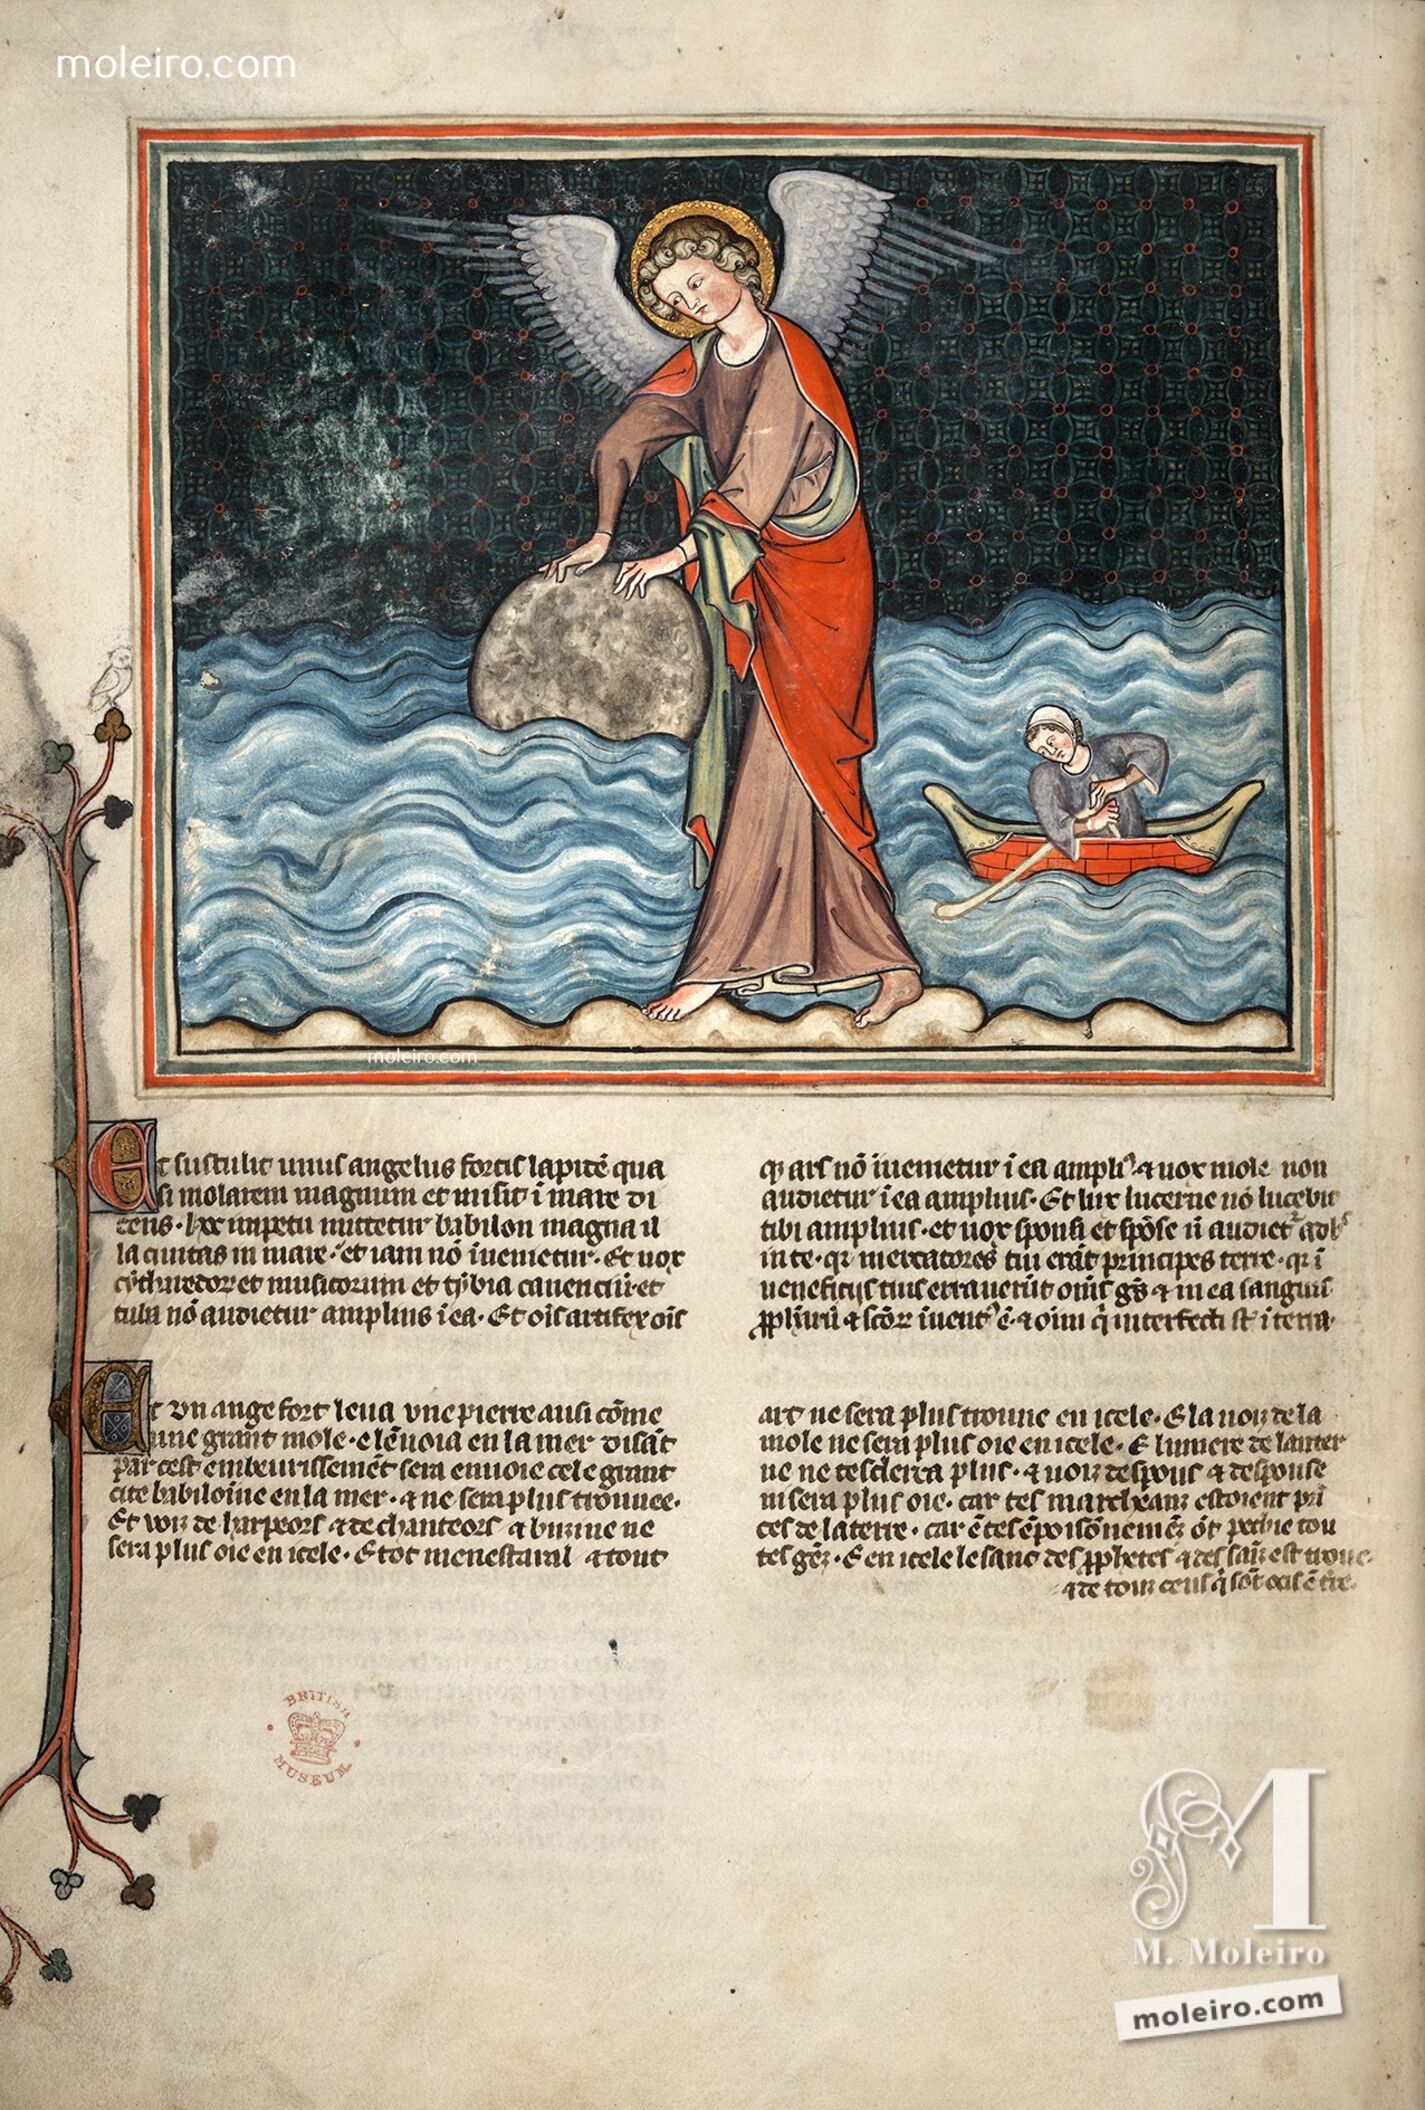 moleiro.com
moleiro.com
Et sustulit unus angelus fortis lapitē qua
si molarem magnum et misit ī mare di
cens · hoc impetu mittetur babilon magna il
la ciuitas in mare · et iam nō īuenietur · Et uox
cytharedor et musicorum et tybia canenciū · et
tuba nō audietur amplius ī ea · Et oīs artifex oīs
q; ars nō īuenietur ī ea ampli⁹ · ⁊ uox mole non
audietur ī ea amplius · Et lux lucerne nō lucebit
tibi amplius · et uox sponsi et spōse n̄ audiet᷑
in te · qr mercatores tui erāt principes terre · qr ī
ueneficijs tuis errauerūt om̄s ⁊ in ea sanguis
⁊ īuent⁹ ē · ⁊ oīm q̄ interfecti st̄ ī terra ·
Et vn ange fort leua vne pierre ausi cōme
une grant mole · e lēuoia en la mer disāt
par cest embeurissemēt sera enuoie cele grant
cite babiloine en la mer · ⁊ ne sera plus trouuee ·
Et voiz de harpeors ⁊ de chanteors ⁊ buisine ne
sera plus oie en icele · E tot menestaral ⁊ tout
art ne sera plus trouue en icele · E la uoiz de la
mole ne sera plus oie en icele · E lumiere de lanter
ne ne tesclerra plus · ⁊ uoiz despous ⁊ despouse
ni sera plus oie · car tes marcheanz estoient prī
ces de la terre · car ē tes ēpoisōnemēz ōt pechie tou
tes gēz · E en icele le sanc des pphetes ⁊ des saīz est trouue
⁊ de touz ceus q̄ sōt ocis ē tre ·
BRITISH
MUSEUM
M
M. Moleiro
moleiro.com